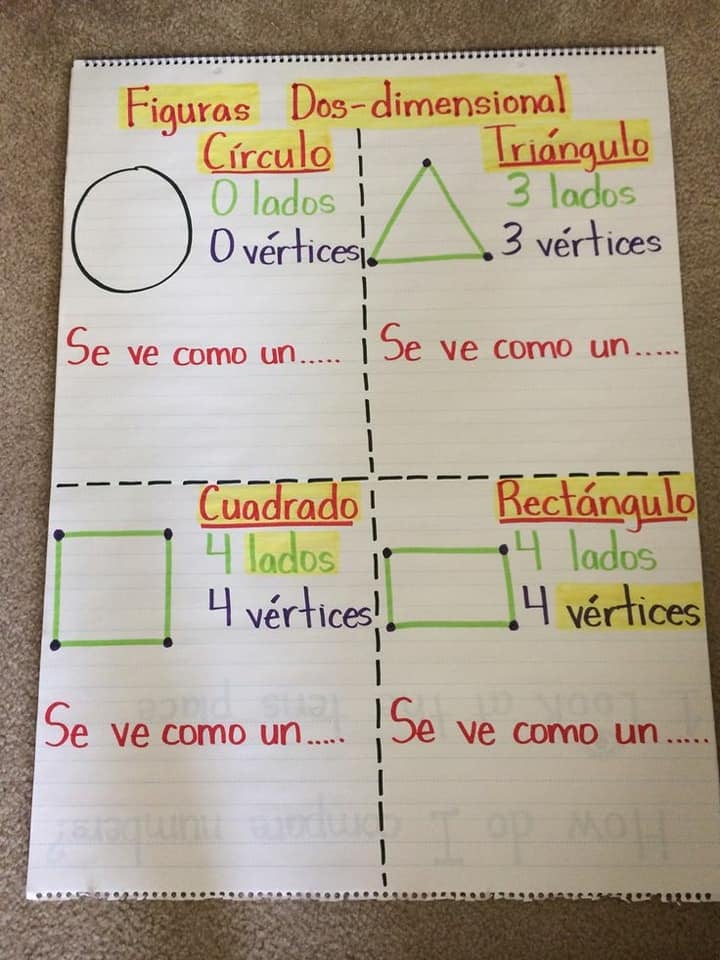 Figuras Dos-dimensional
Círculo
0 lados
0 vértices
Se ve como un.....
Triángulo
3 lados
3 vértices
Se ve como un.....
Cuadrado
4 lados
4 vértices
Se ve como un.....
Rectángulo
4 lados
4 vértices
Se ve como un.....
How do I compare numbers?
I Look at the tens place